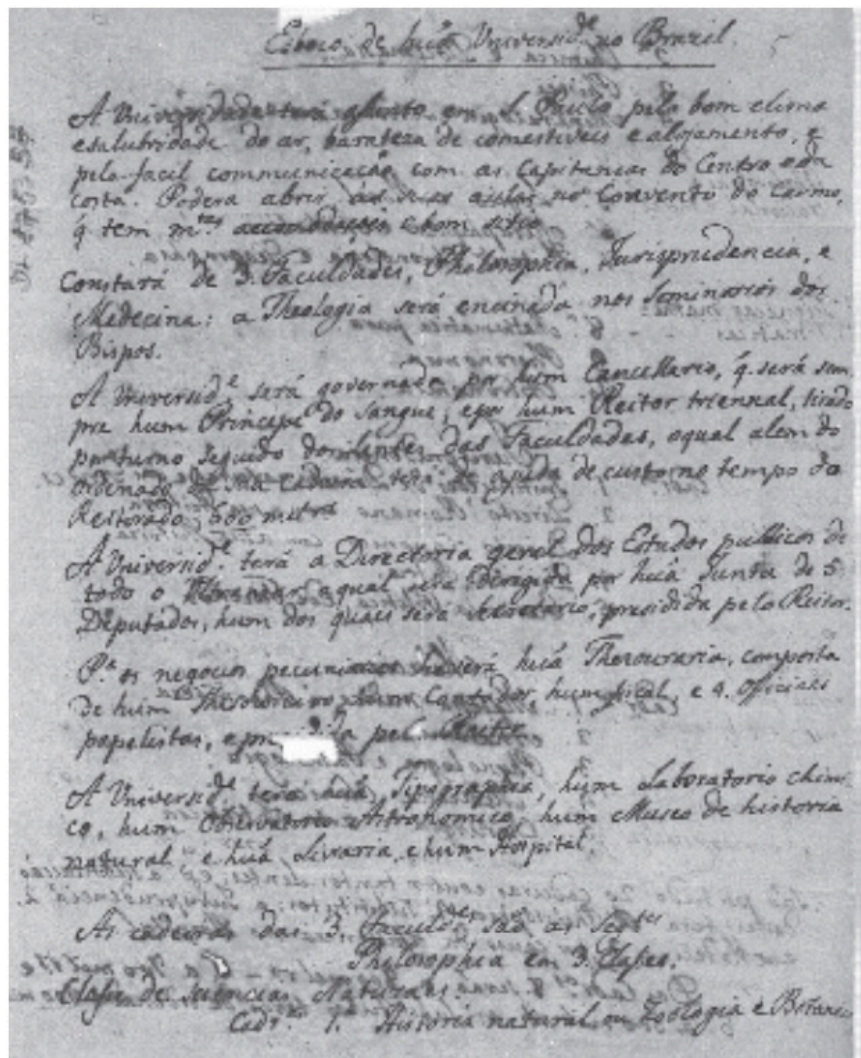 Esboço de huã Universid.e no Brazil.
A Universidade terá assento em S. Paulo pelo bom clima
e salubridade do ar, barateza de comestiveis e alojamento, e
pela facil communicação com as Capitanias do Centro e da
costa. Poderá abrir as suas aulas no Convento do Carmo,
q̃ tem m.tas e bom sitio
Constará de 3. Faculdades, Philosophia, Jurisprudencia, e
Medecina: a Theologia será encinada nos Seminarios dos
Bispos.
A Universid.e será governada por hum Cancellario, q̃. será sem
pre hum Principe do Sangue, e por hum Reitor triennal, tirado
por turno seguido dos lentes das Faculdades, o qual alem do
ordenado de sua Cadeira terá de ajuda de custo no tempo do
Reitorado, 600
A Universid.e terá a Directoria geral dos Estudos publicos de
todo o a qual será dirigida por huã Junta de 5
Deputados, hum dos quais será Secretario, presidida pelo Reitor.
P.a os negocios pecuniarios haverá huã Thezouraria, composta
de hum Thesoureiro, hum Contador, hum fiscal, e 4. Officiais
papelistas, e pelo Reitor
A Universid.e terá huã Tipographia, hum Laboratorio chimi
co, hum Observatorio Astronomico, hum Museo de historia
natural e huã Livraria, e hum Hospital.
As cadeiras das 3. Faculd.es são as Seg.tes
Philosophia em 3. Classes.
Classe de Sciencias Naturaes.
Cadr.a 1.a Historia natural ou Zoologia e Botanica